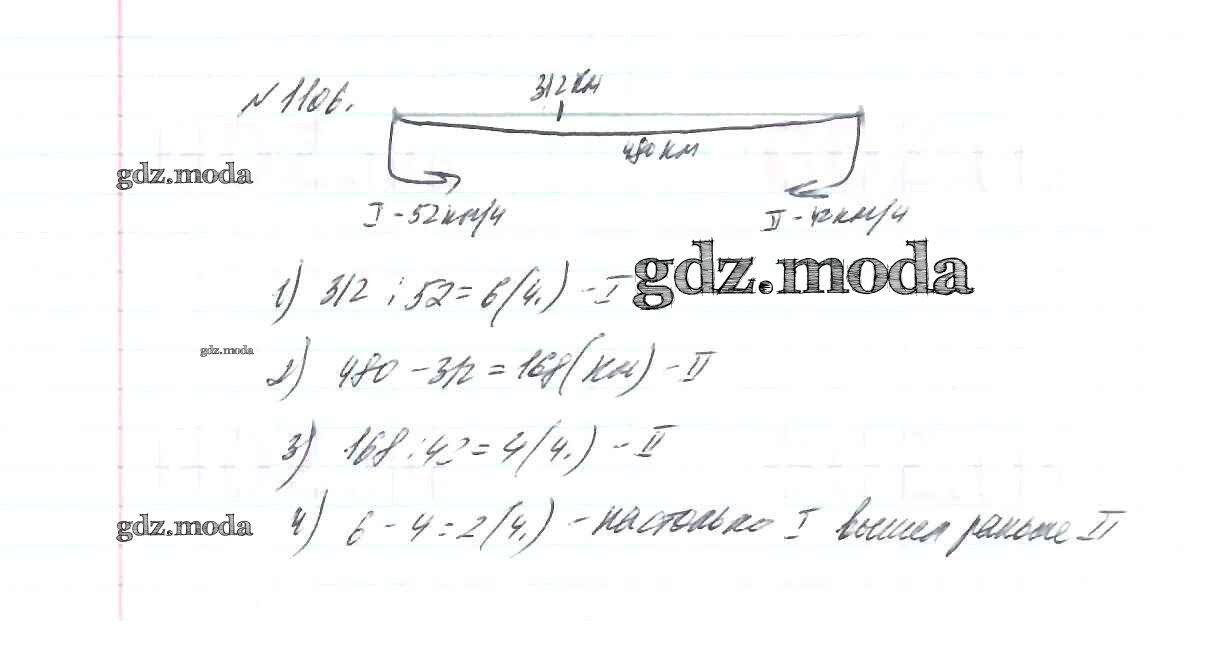 N 1106.
312 км
480 км
I - 52 км/ч
II - 42 км/ч
gdz.moda
gdz.moda
1) 312 : 52 = 6 (ч.) - I
gdz.moda
2) 480 - 312 = 168 (км) - II
3) 168 : 42 = 4 (ч.) - II
gdz.moda
4) 6 - 4 = 2 (ч.) - настолько I вышел раньше II